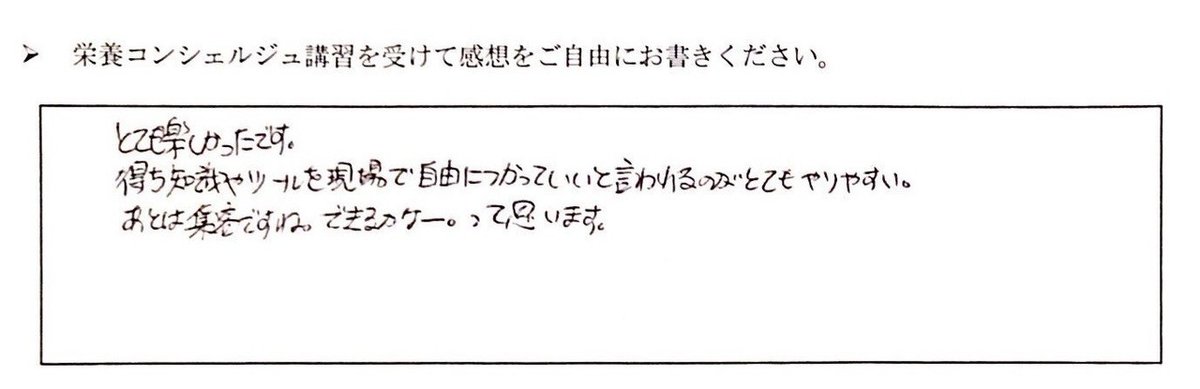 ➤ 栄養コンシェルジュ講習を受けて感想をご自由にお書きください。
とても楽しかったです。
得た知識やツールを現場で自由につかっていいと言われるのがとてもやりやすい。
あとは集客ですね。できるかなー。って思います。